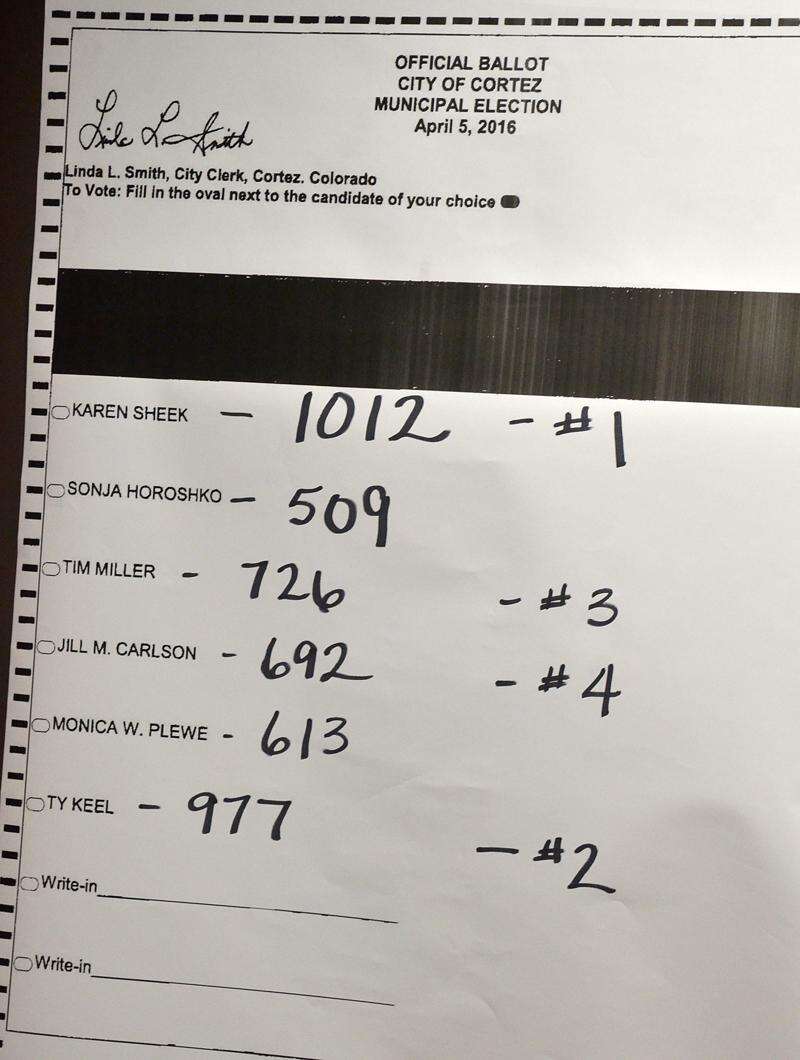 OFFICIAL BALLOT
CITY OF CORTEZ
MUNICIPAL ELECTION
April 5, 2016
Linda L. Smith
Linda L. Smith, City Clerk, Cortez. Colorado
To Vote: Fill in the oval next to the candidate of your choice
KAREN SHEEK - 1012 - #1
SONJA HOROSHKO - 509
TIM MILLER - 726 - #3
JILL M. CARLSON - 692 - #4
MONICA W. PLEWE - 613
TY KEEL - 977 - #2
Write-in
Write-in